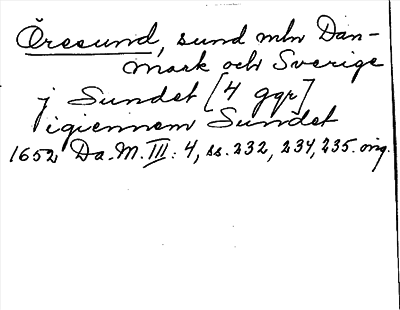 Öresund, sund mln Dan-
mark och Sverige
j Sundet [4 ggr]
igiennem Sundet
1652 Da. M. III: 4, ss. 232, 234, 235. orig.